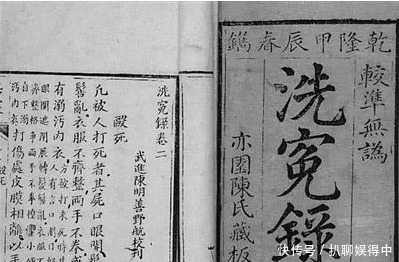 乾隆甲辰春鐫
較準無譌
洗冤錄
亦園陳氏藏板
洗冤錄卷二
武進陳明善野航校刊
毆死
凡被人打死者其屍口眼開
髻亂衣服不齊整兩手不拳或
有溺污內衣
打傷處皮膜相離以手
快传号 / 扒聊娱得中